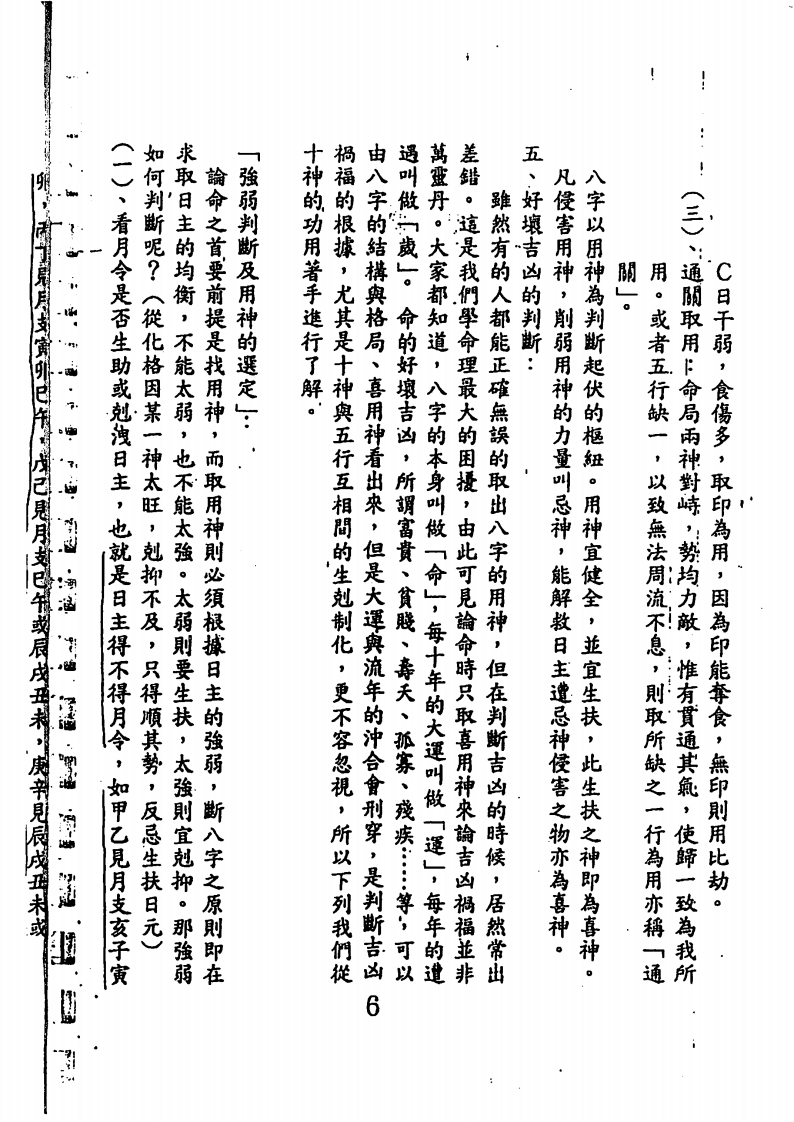 C日干弱，食傷多，取印為用，因為印能奪食，無印則用比劫。
（三）、通關取用：命局兩神對峙，勢均力敵，惟有貫通其氣，使歸一致為我所
用。或者五行缺一，以致無法周流不息，則取所缺之一行為用亦稱「通
關」。
八字以用神為判斷起伏的樞紐。用神宜健全，並宜生扶，此生扶之神即為喜神。
凡侵害用神，削弱用神的力量叫忌神，能解救日主遭忌神侵害之物亦為喜神。
五、好壞吉凶的判斷：
雖然有的人都能正確無誤的取出八字的用神，但在判斷吉凶的時候，居然常出
差錯。這是我們學命理最大的困擾，由此可見論命時只取喜用神來論吉凶禍福並非
萬靈丹。大家都知道，八字的本身叫做「命」，每十年的大運叫做「運」，每年的遭
遇叫做「歲」。命的好壞吉凶，所謂富貴、貧賤、壽夭、孤寡、殘疾……等，可以
由八字的結構與格局、喜用神看出來，但是大運與流年的沖合會刑穿，是判斷吉凶
禍福的根據，尤其是十神與五行互相間的生剋制化，更不容忽視，所以下列我們從
十神的功用著手進行了解。
「強弱判斷及用神的選定」：
論命之首要前提是找用神，而取用神則必須根據日主的強弱，斷八字之原則即在
求取日主的均衡，不能太弱，也不能太強。太弱則要生扶，太強則宜剋抑。那強弱
如何判斷呢？（從化格因某一神太旺，剋抑不及，只得順其勢，反忌生扶日元）
（一）、看月令是否生助或剋洩日主，也就是日主得不得月令，如甲乙見月支亥子寅
卯，丙丁見月支寅卯巳午，戊己見月支巳午或辰戌丑未，庚辛見辰戌丑未或
6